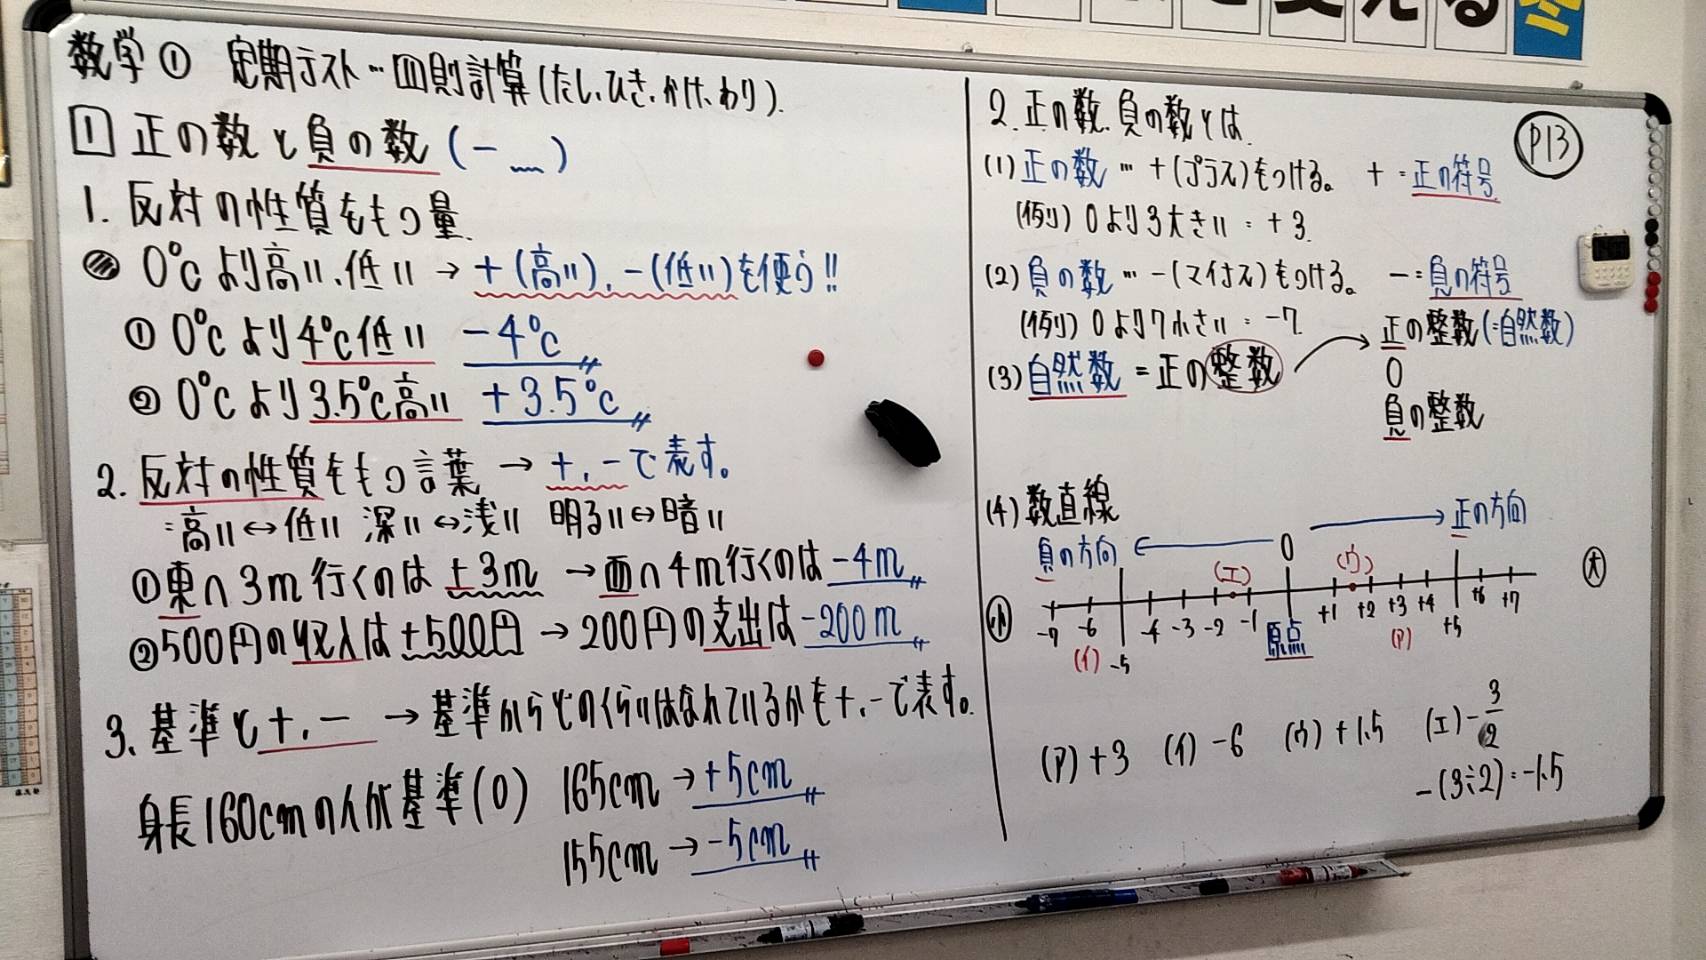 数学① 定期テスト…四則計算(たし、ひき、かけ、わり).
1 正の数と負の数(-﹏)
1. 反対の性質をもつ量.
0℃より高い、低い → +(高い)、-(低い)を使う!!
① 0℃より4℃低い -4℃
② 0℃より3.5℃高い +3.5℃
2. 反対の性質をもつ言葉 → +、-で表す。
:高い↔低い 深い↔浅い 明るい↔暗い
①東へ3m行くのは+3m → 西へ4m行くのは-4m
②500円の収入は+500円 → 200円の支出は-200m
3. 基準と+、- → 基準からどのくらいはなれているかを+、-で表す。
身長160cmの人が基準(0) 165cm → +5cm
155cm → -5cm
2. 正の数、負の数とは.
P13
(1) 正の数 … +(プラス)をつける。 + = 正の符号
(例) 0より3大きい = +3.
(2) 負の数 … -(マイナス)をつける。 - = 負の符号
(例) 0より7小さい = -7
(3) 自然数 = 正の整数 → 正の整数(=自然数)
0
負の整数
(4) 数直線
負の方向 ← 0 → 正の方向
(エ) (ウ)
小 大
-7 -6 -5 -4 -3 -2 -1 原点 +1 +2 +3 +4 +5 +6 +7
(イ) (ア)
(ア)+3 (イ)-6 (ウ)+1.5 (エ)-3/2
-(3÷2)=-1.5